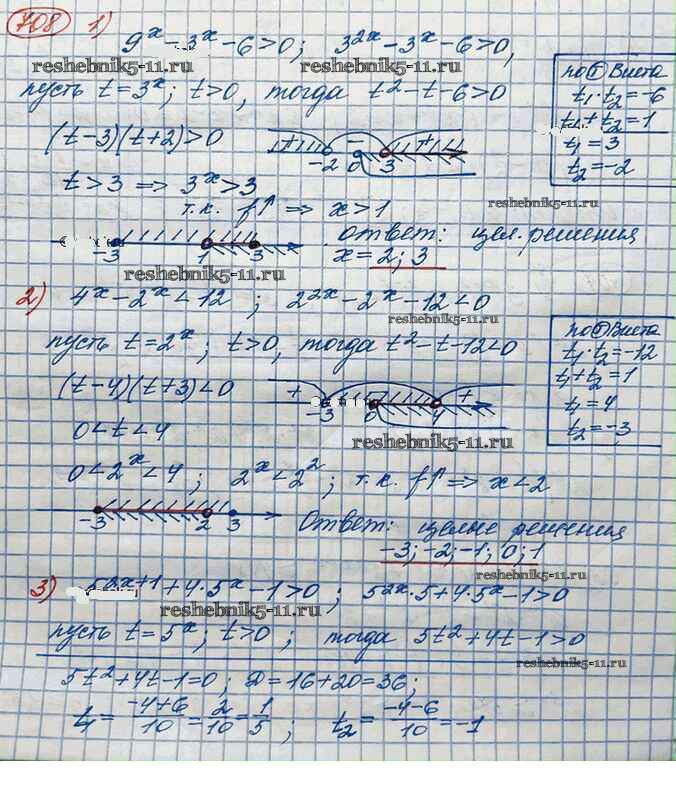 708 1)
9^x - 3^x - 6 > 0; 3^2x - 3^x - 6 > 0,
reshebnik5-11.ru reshebnik5-11.ru
пусть t = 3^x; t > 0, тогда t² - t - 6 > 0
по Т Виета
t₁ · t₂ = -6
t₁ + t₂ = 1
t₁ = 3
t₂ = -2
(t - 3)(t + 2) > 0
+ -2 - 0 3 +
t > 3 => 3^x > 3
reshebnik5-11.ru
т.к. f↑ => x > 1
-3 1 3
Ответ: цел. решения
x = 2; 3
reshebnik5-11.ru
2) 4^x - 2^x < 12 ; 2^2x - 2^x - 12 < 0
reshebnik5-11.ru
пусть t = 2^x; t > 0, тогда t² - t - 12 < 0
по Т Виета
t₁ · t₂ = -12
t₁ + t₂ = 1
t₁ = 4
t₂ = -3
(t - 4)(t + 3) < 0
+ -3 0 4 +
0 < t < 4
reshebnik5-11.ru
0 < 2^x < 4 ; 2^x < 2² ; т.к. f↑ => x < 2
-3 2 3
Ответ: целые решения
-3; -2; -1; 0; 1
3) 5^2x+1 + 4 · 5^x - 1 > 0 ; 5^2x · 5 + 4 · 5^x - 1 > 0
reshebnik5-11.ru
пусть t = 5^x; t > 0 ; тогда 5t² + 4t - 1 > 0
reshebnik5-11.ru
5t² + 4t - 1 = 0; D = 16 + 20 = 36;
t₁ = -4+6/10 = 2/10 = 1/5 ; t₂ = -4-6/10 = -1